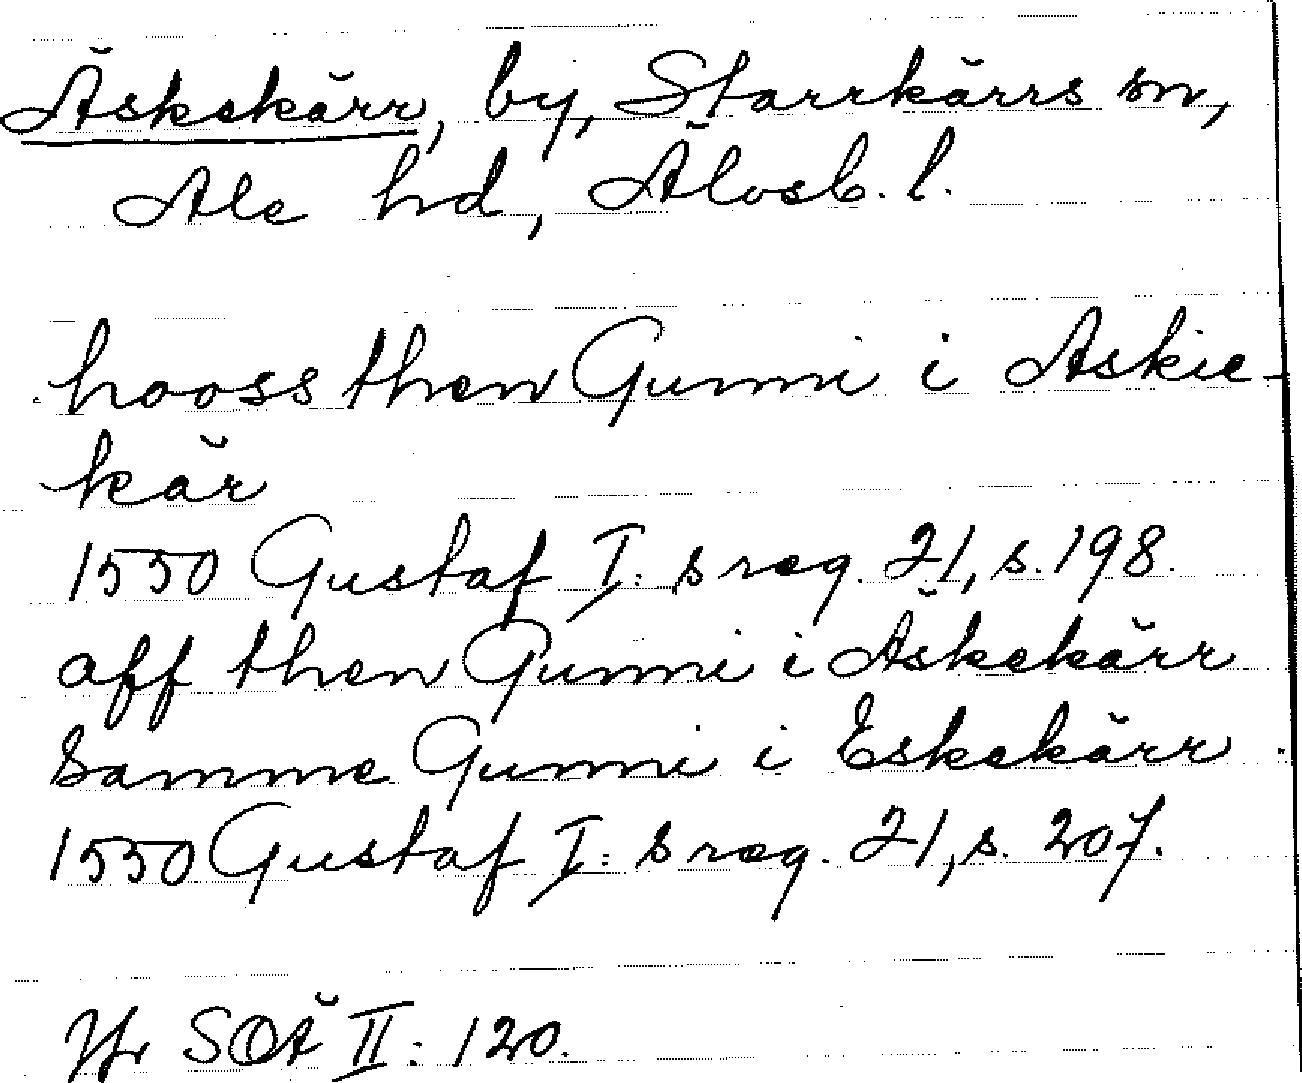 Äskekärr, by, Starrkärrs sn,
Ale hd, Älvsb. l.
hooss then Gunni i Askie-
kär
1550 Gustaf I:s reg. 21, s. 198.
aff then Gunni i Äskekärr
Samme Gunni i Eskekärr
1550 Gustaf I:s reg. 21, s. 207.
Jfr SOÄ II: 120.